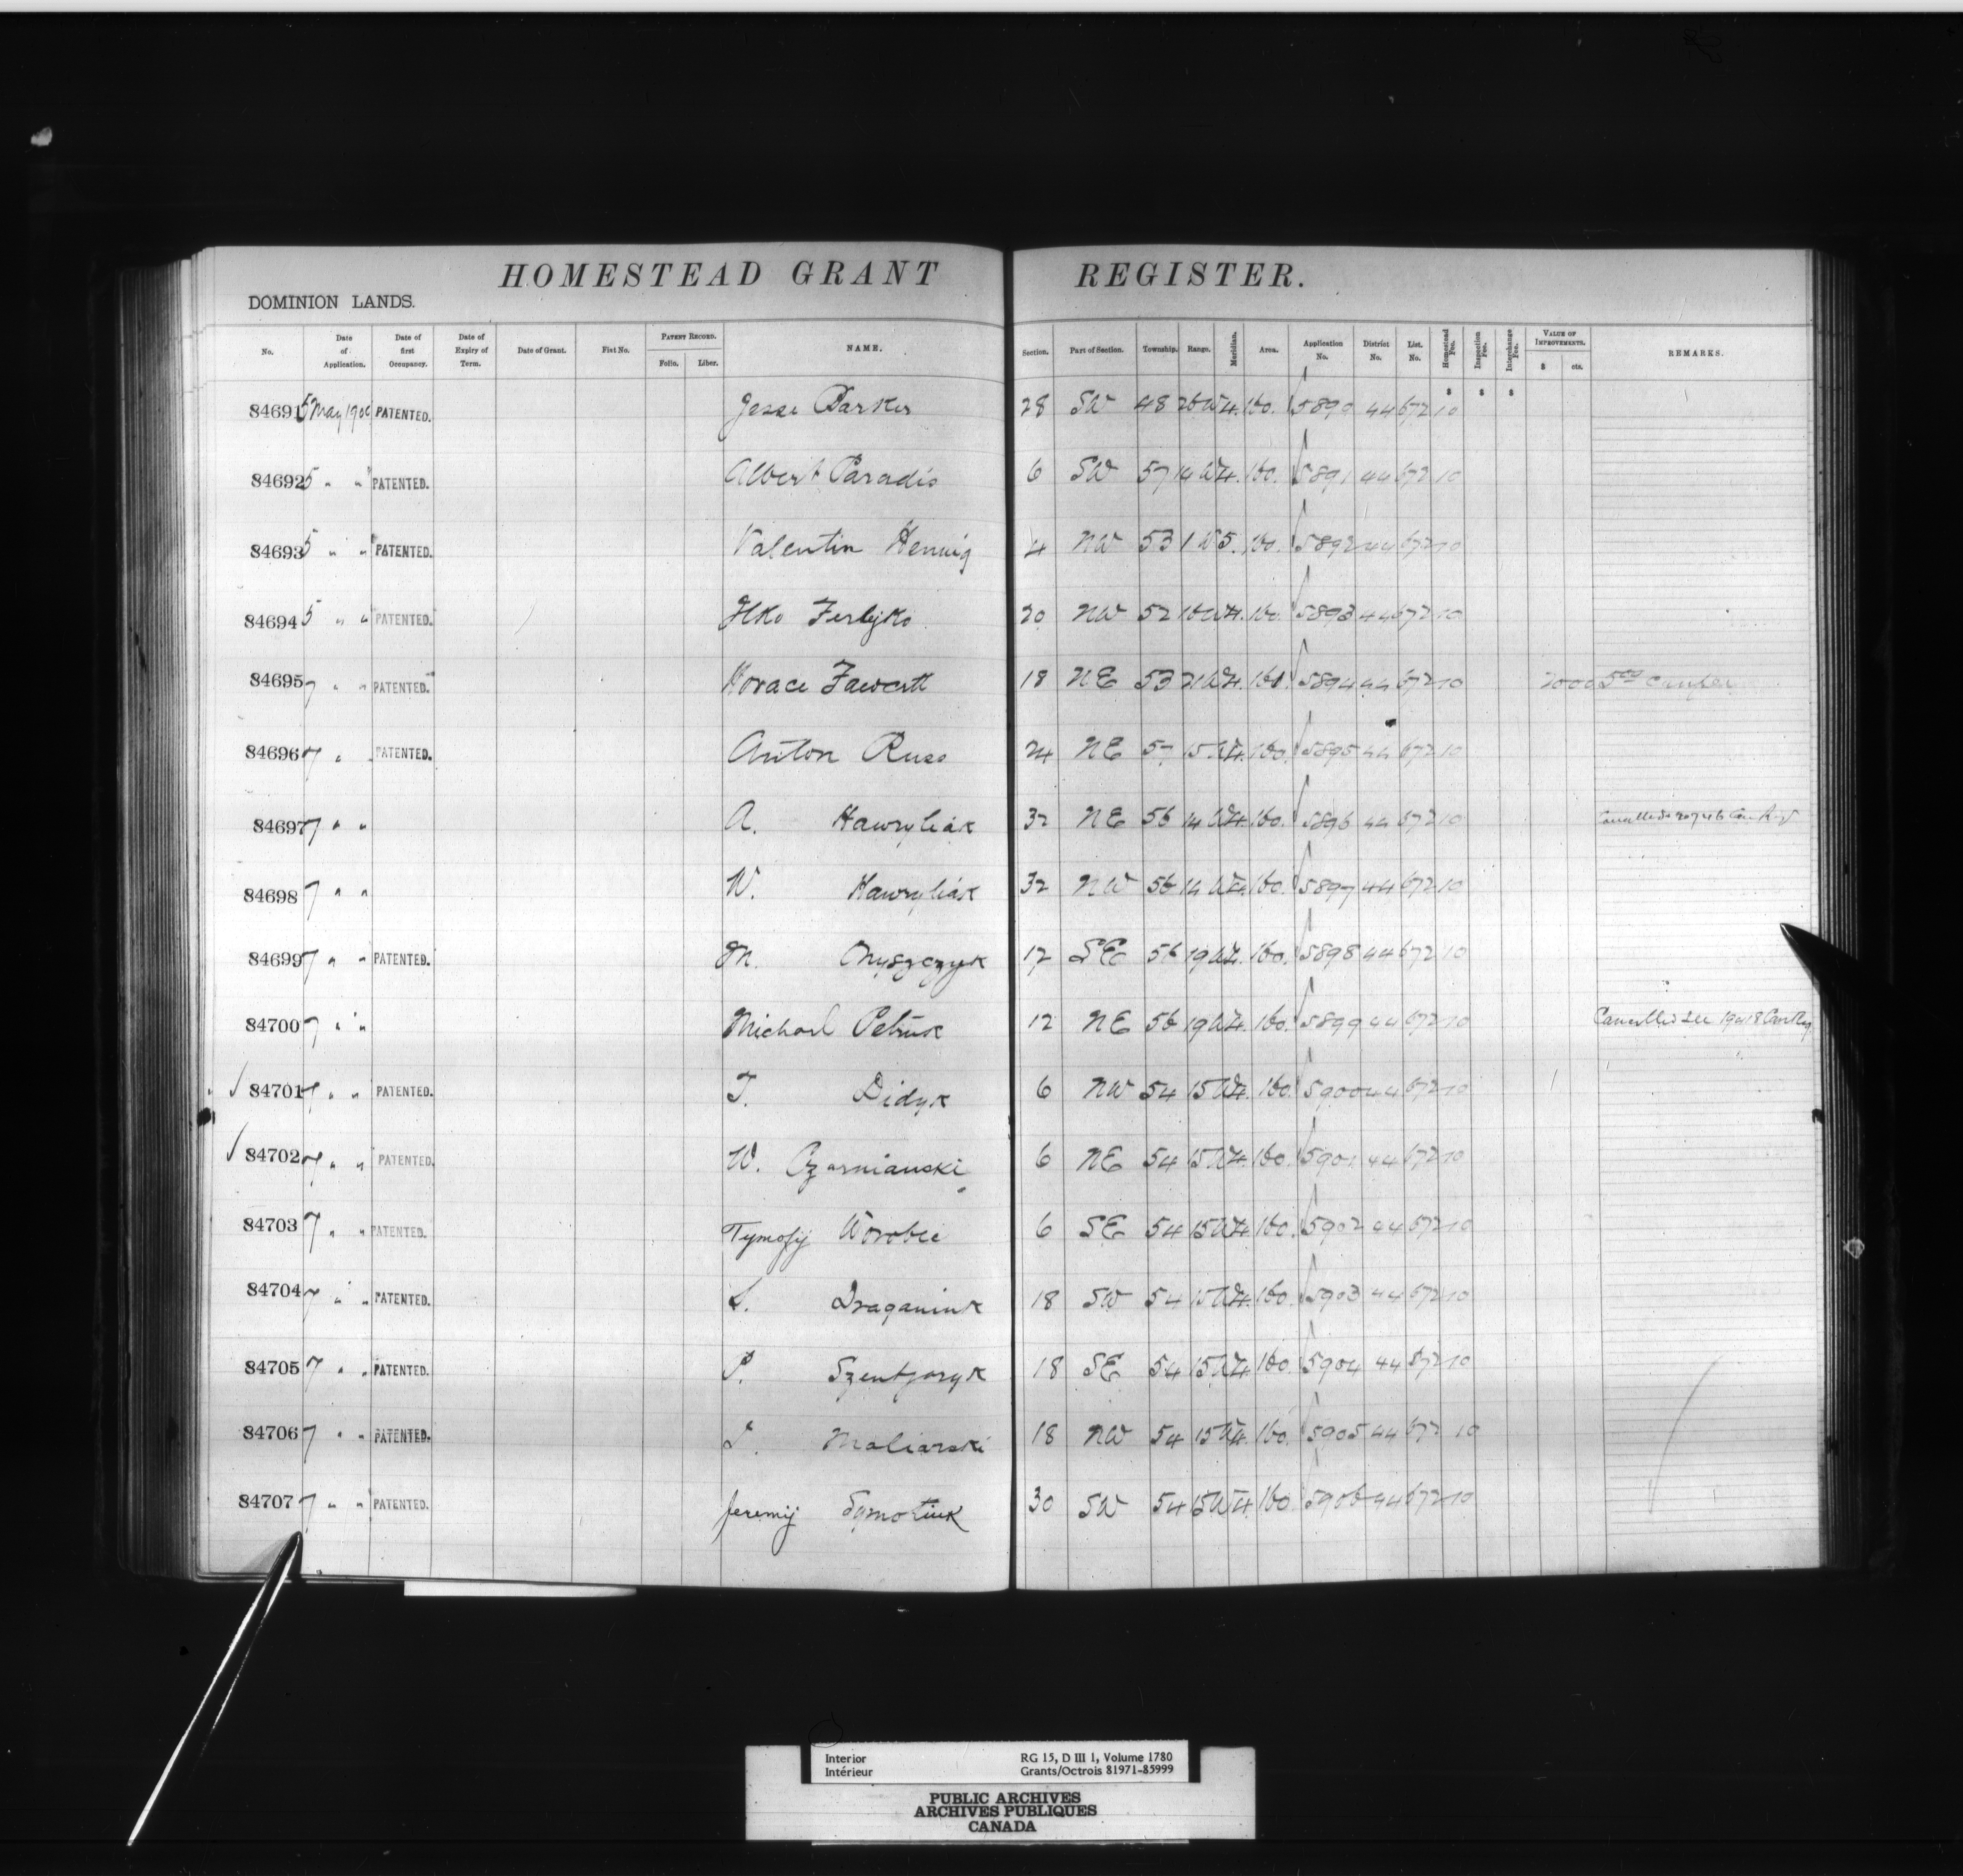 HOMESTEAD GRANT REGISTER.
DOMINION LANDS.
No. Date of Application. Date of first Occupancy. Date of Expiry of Term. Date of Grant. Fiat No. PATENT RECORD. Folio. Liber. NAME. Section. Part of Section. Township. Range. Meridian. Area. Application No. District No. List. No. Homestead Fee. Inspection Fee. Interchange Fee. VALUE OF IMPROVEMENTS. $ cts. REMARKS.
84691 5 May 1900 PATENTED. Jesse Barker 28 SW 48 26 W4. 160. 44 672 10
84692 5 " " PATENTED. Albert Paradis 6 SW 57 14 W4. 160. 5891 44 672 10
84693 5 " " PATENTED. Valentin Hennig 4 NW 53 1 W5. 160. 5892 44 672 10
84694 5 " " PATENTED. 20 NW 52 16 W4. 160. 5893 44 672 10
84695 7 " " PATENTED. Horace Fawcett 18 NE 53 21 W4. 160. 5894 44 672 10
84696 7 " " PATENTED. Anton Russ 24 NE 57 15 W4. 160. 5895 44 672 10
84697 7 " " A. Hawryliak 32 NE 56 14 W4. 160. 5896 44 672 10
84698 7 " " W. Hawryliak 32 NW 56 14 W4. 160. 5897 44 672 10
84699 7 " " PATENTED. M. Onyszczyk 12 SE 56 19 W4. 160. 5898 44 672 10
84700 7 " " Michael Petruk 12 NE 56 19 W4. 160. 5899 44 672 10 Cancelled see 19418 Can Reg.
84701 7 " " PATENTED. T. Didyk 6 NW 54 15 W4. 160. 5900 44 672 10
84702 7 " " PATENTED. W. Czarnianski 6 NE 54 15 W4. 160. 5901 44 672 10
84703 7 " " PATENTED. Tymofij Worobec 6 SE 54 15 W4. 160. 5902 44 672 10
84704 7 " " PATENTED. Draganiuk 18 SW 54 15 W4. 160. 5903 44 672 10
84705 7 " " PATENTED. P. 18 SE 54 15 W4. 160. 5904 44 672 10
84706 7 " " PATENTED. Maliarski 18 NW 54 15 W4. 160. 5905 44 672 10
84707 7 " " PATENTED. Jeremij 30 SW 54 15 W4 160 5906 44 672 10
Interior RG 15, D III 1, Volume 1780
Intérieur Grants/Octrois 81971-85999
PUBLIC ARCHIVES
ARCHIVES PUBLIQUES
CANADA